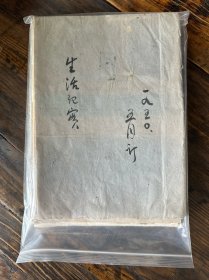 一九五〇.
五月订
生活纪实